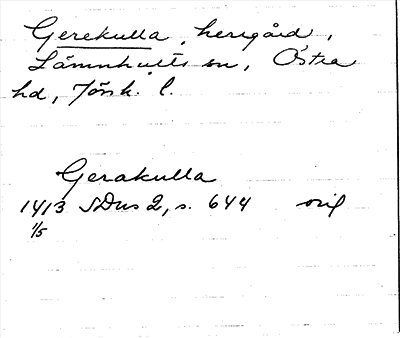 Gerekulla, herrgård,
Lämnhults sn, Östra
hd, Jönk. l.
Gerakulla
1413 SDns 2, s. 644 orig
1/5